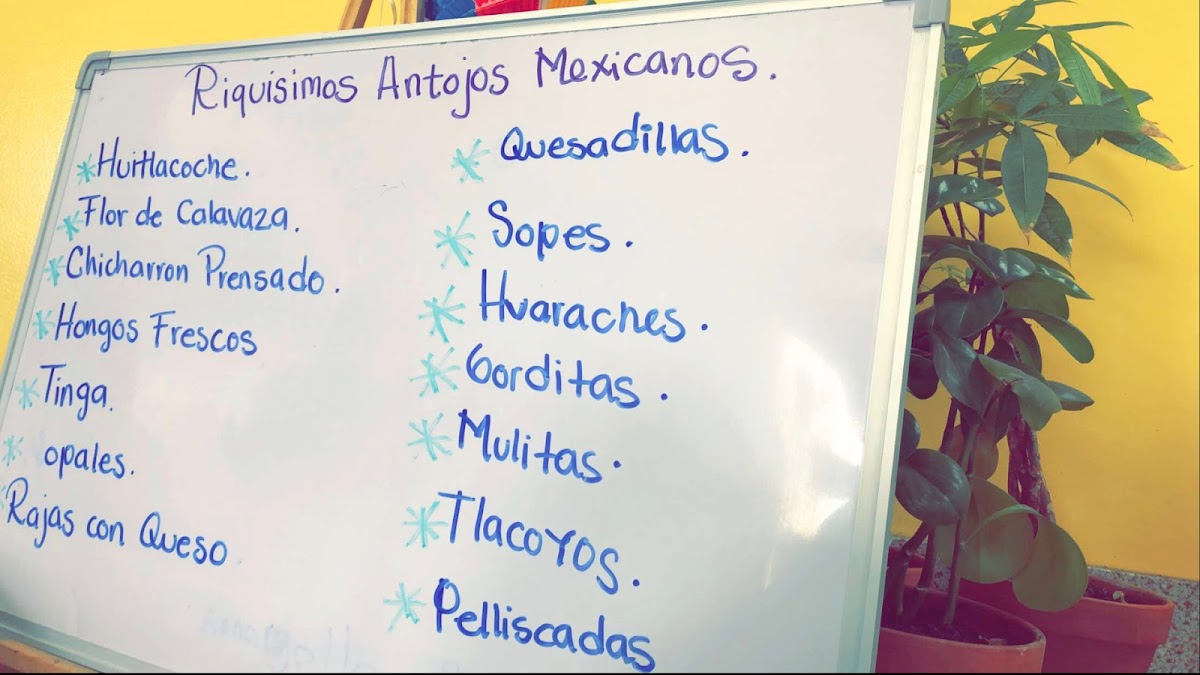 Riquísimos Antojos Mexicanos.
* Huitlacoche.
* Flor de Calavaza.
* Chicharron Prensado.
* Hongos Frescos
* Tinga.
* opales.
* Rajas con Queso
* Quesadillas.
* Sopes.
* Huaraches.
* Gorditas.
* Mulitas.
* Tlacoyos.
* Pelliscadas